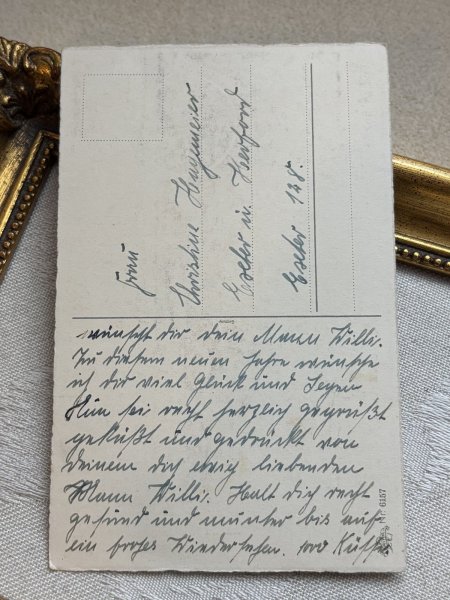 Frau
Christine Hagemeier
Exter in Herford
Exter 128.
wünscht dir dein Mann Willi.
In diesem neuen Jahre wünsche
ich dir viel Glück und Segen
Nun sei recht herzlich gegrüßt
geküßt und gedrückt von
deinem dich ewig liebenden
Mann Willi. Halt dich recht
gesund und munter bis auf
ein frohes Wiedersehen. 1000 Küsse
Nr. 6157